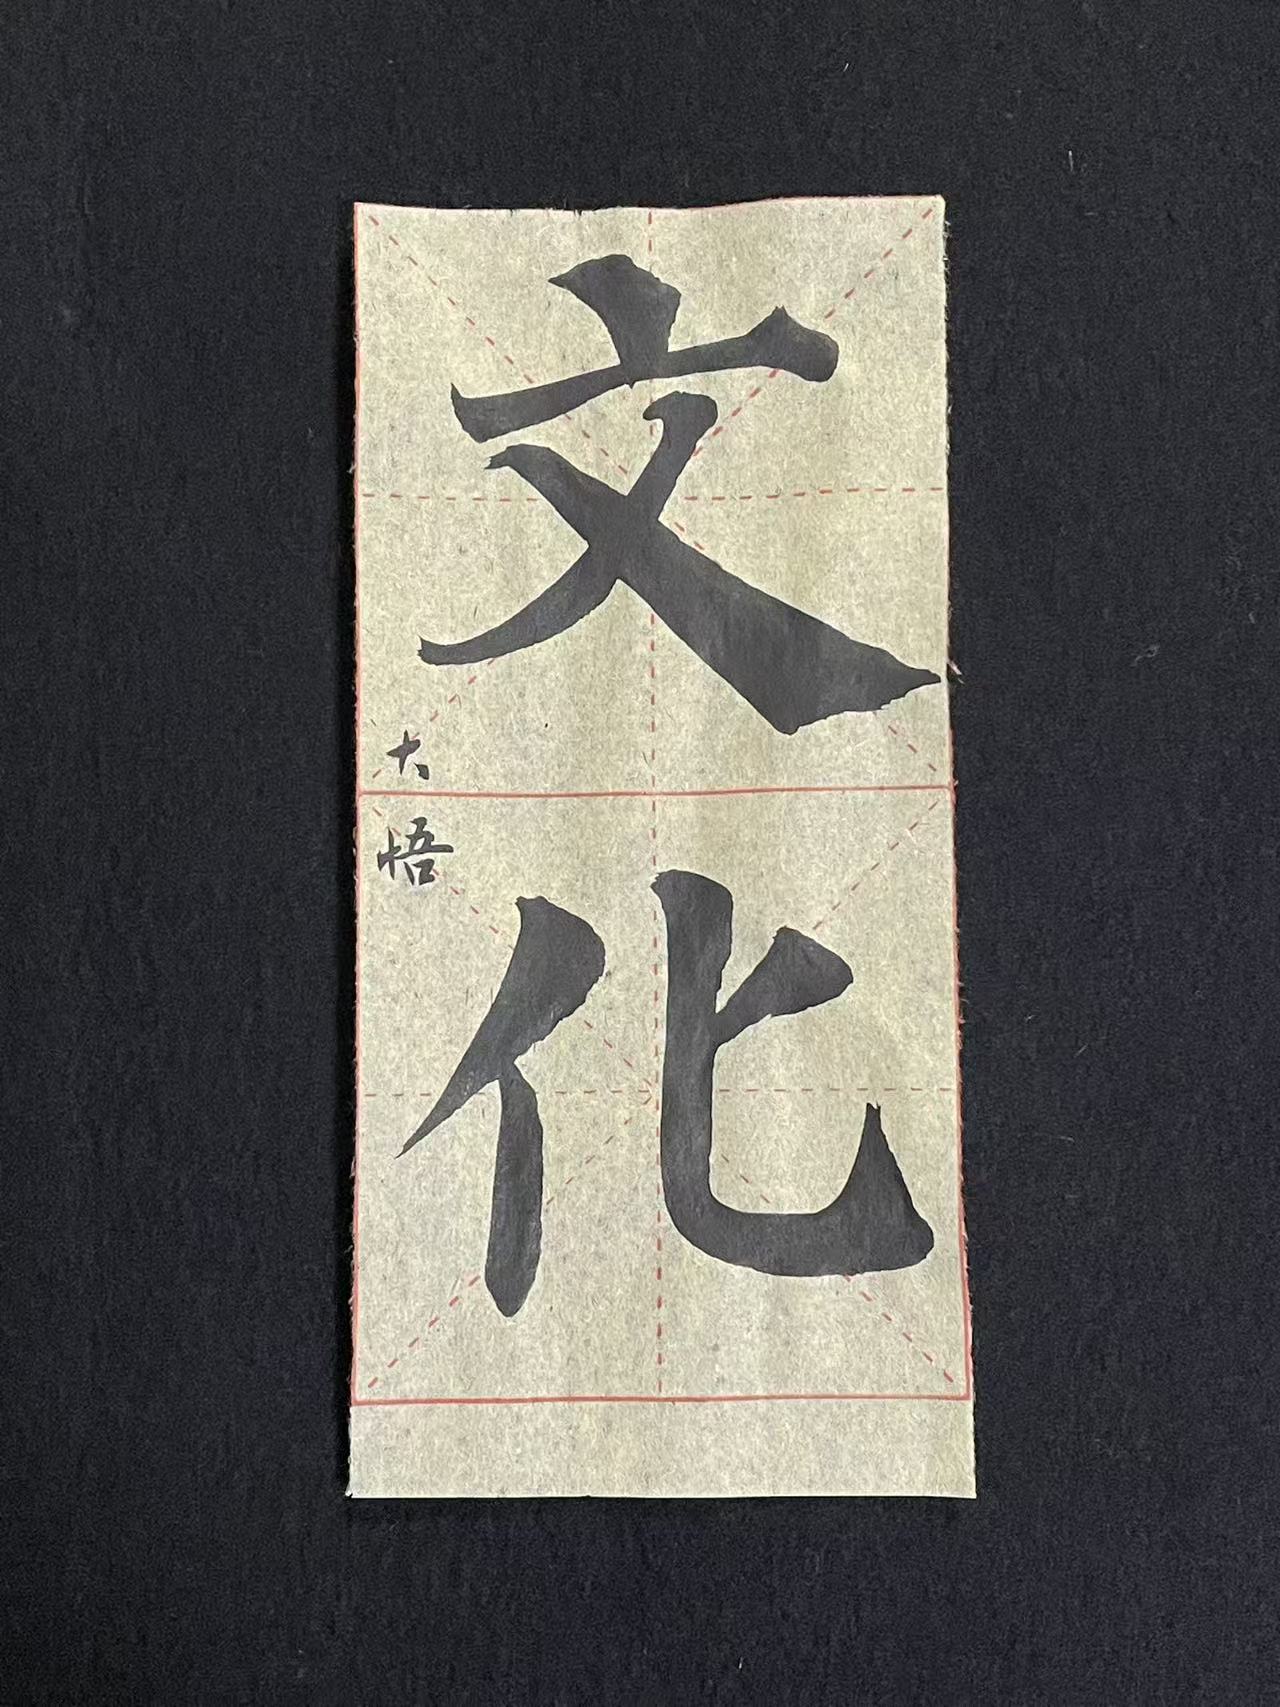 文化
大悟